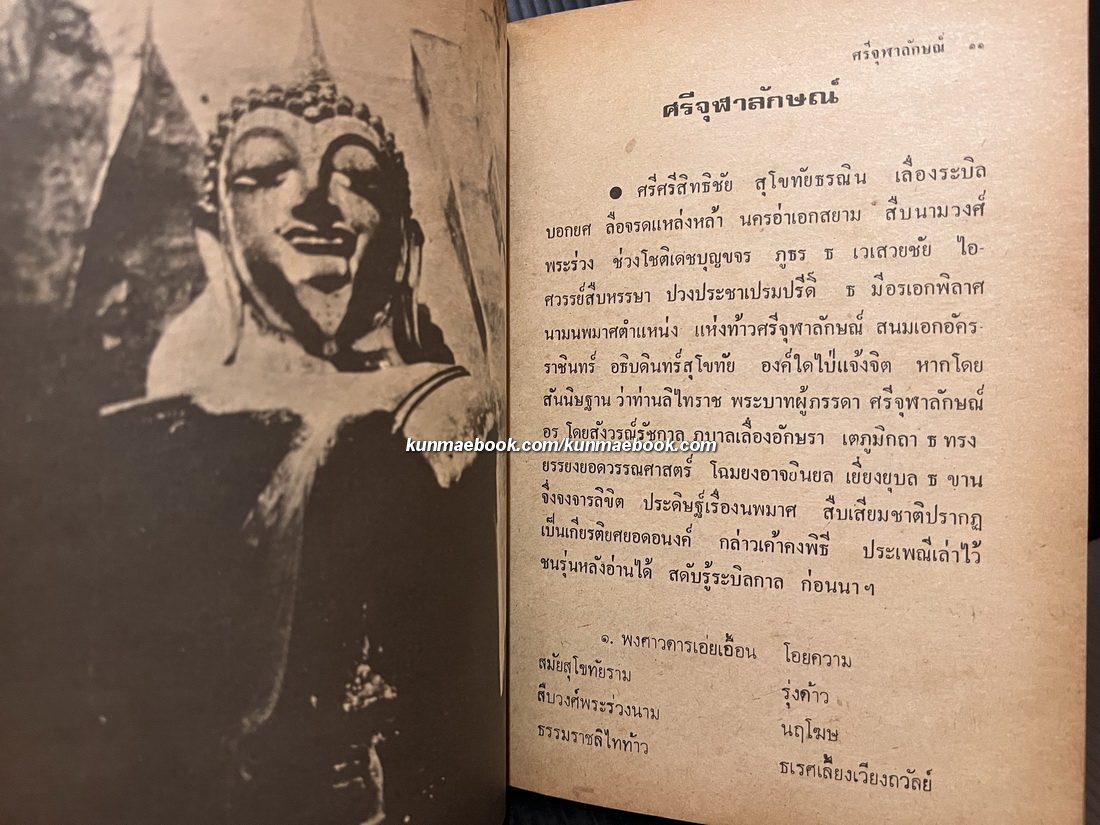 ศรีจุฬาลักษณ์ ๑๑
ศรีจุฬาลักษณ์
● ศรีศรีสิทธิชัย สุโขทัยธรณิน เลื่องระบิล
บอกยศ ลือจรดแหล่งหล้า นครอ่าเอกสยาม สืบนามวงศ์
พระร่วง ช่วงโชติเดชบุญขจร ภูธร ธ เวเสวยชัย ไอ-
ศวรรย์สืบหรรษา ปวงประชาเปรมปรีดิ์ ธ มีอรเอกพิลาศ
นามนพมาศตำแหน่ง แห่งท้าวศรีจุฬาลักษณ์ สนมเอกอัคร-
ราชินทร์ อธิบดินทร์สุโขทัย องค์ใดไป่แจ้งจิต หากโดย
สันนิษฐาน ว่าท่านลิไทราช พระบาทผู้ภรรดา ศรีจุฬาลักษณ์
อร โดยสังวรณ์รัชกาล ภูบาลเลื่องอักษรา เตภูมิกถา ธ ทรง
kunmaebook.com/kunmaebook.com
ยรรยงยอดวรรณศาสตร์ โฉมยงอาจยินยล เยี่ยงยุบล ธ ขาน
จึ่งจงจารลิขิต ประดิษฐ์เรื่องนพมาศ สืบเสียมชาติปรากฏ
เป็นเกียรติยศยอดอนงค์ กล่าวเค้าคงพิธี ประเพณีเล่าไว้
ชนรุ่นหลังอ่านได้ สดับรู้ระบิลกาล ก่อนนา ๆ
๑. พงศาวดารเอ่ยเอื้อน โอยความ
สมัยสุโขทัยราม รุ่งด้าว
สืบวงศ์พระร่วงนาม นฤโฆษ
ธรรมราชลิไทท้าว ธเรศเลี้ยงเวียงถวัลย์